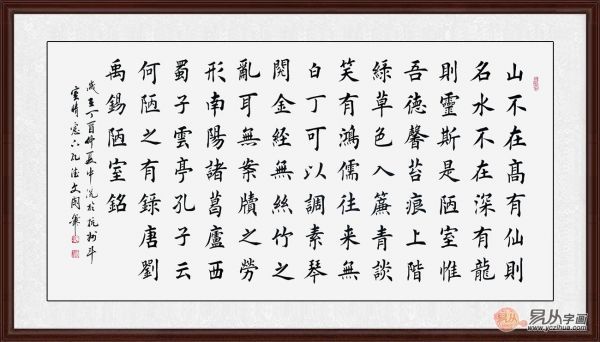 山不在髙有仙則
名水不在深有龍
則靈斯是陋室惟
吾徳馨苔痕上階
緑草色入簾青談
笑有鴻儒往来無
白丁可以調素琴
閲金經無絲竹之
亂耳無案牘之勞
形南陽諸葛廬西
蜀子雲亭孔子云
何陋之有録唐劉
禹錫陋室銘
歲在丁酉仲夏中浣於杭州斗
室晴窓
易从字画
www.yczihua.com